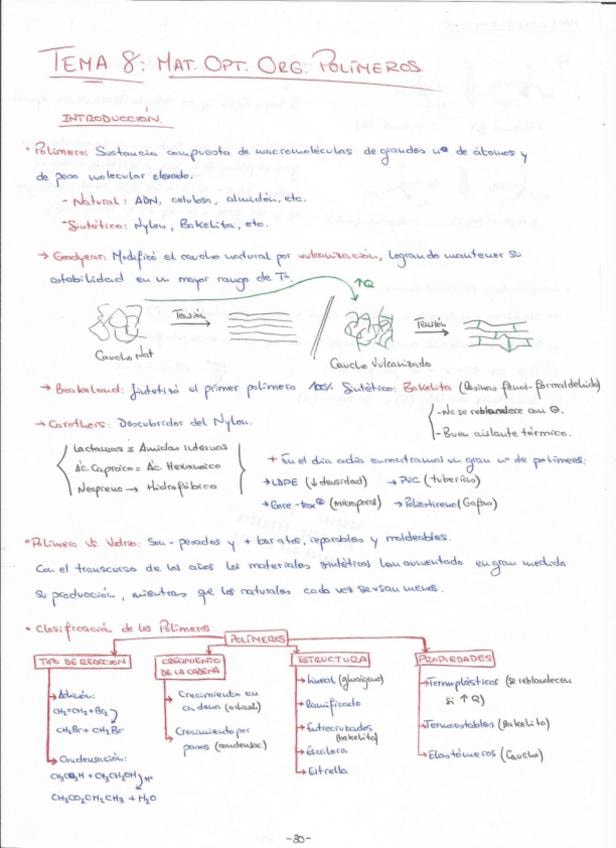 TEMA 8: MAT. OPT. ORG. POLÍMEROS.
INTRODUCCIÓN
• Polímero: Sustancia compuesta de macromoléculas de grandes nº de átomos y
de peso molecular elevado.
- Natural: ADN, celulosa, almidón, etc.
- Sintético: Nylon, Bakelita, etc.
→ Goodyear: Modificó el caucho natural por vulcanización, logrando mantener su
estabilidad en un mayor rango de Tª.
↑Q
Tensión
Tensión
Caucho Nat
Caucho Vulcanizado
→ Beakeland: Sintetizó el primer polímero 100% Sintético: Bakelita (Resinas fenol-formaldehido)
- No se reblandece con Q.
- Buen aislante térmico.
→ Carothers: Descubridor del Nylon.
Lactamas ≡ Amidas internas
Ác. Caproico = Ác. Hexanoico
Neopreno → Hidrofóbico
+ En el día a día encontramos un gran nº de polímeros:
→ LDPE (↓ densidad) → PVC (tuberías)
→ Gore-tex® (microporos) → Poliestireno (Gafas)
• Polímero vs. Vidrio: Son - pesados y + baratos, reparables y moldeables.
Con el transcurso de los años los materiales sintéticos han aumentado en gran medida
su producción, mientras que los naturales cada vez se usan menos.
• Clasificación de los Polímeros
POLÍMEROS
TIPO DE REACCIÓN
→ Adición:
CH₂=CH₂ + Br₂
CH₂Br + CH₂Br
→ Condensación:
CH₃CO₂H + CH₃CH₂OH H⁺
CH₃CO₂CH₂CH₃ + H₂O
CRECIMIENTO
DE LA CADENA
→ Crecimiento en
cadena
→ Crecimiento por
pasos (condensac)
ESTRUCTURA
→ Lineal
→ Ramificado
→ Entrecruzados
(bakelita)
→ Escalera
→ Estrella
PROPIEDADES
→ Termoplásticos (se reblandecen
si ↑ Q)
→ Termoestables (Bakelita)
→ Elastómeros (Caucho)
-30-